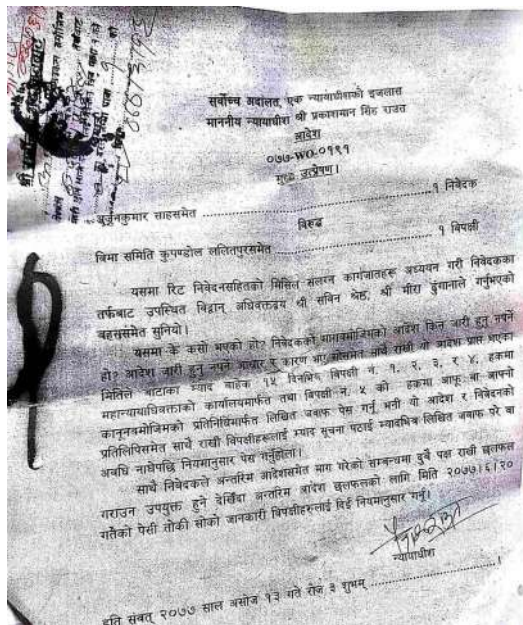 सर्वोच्च अदालत, एक न्यायाधीशको इजलास
माननीय न्यायाधीश श्री प्रकाशमान सिंह राउत
आदेश
०७७-WO-०१९१
मुद्दाः उत्प्रेषण।
अर्जुनकुमार साहसमेत .......... १ निवेदक
विरुद्ध
बिमा समिति कुपण्डोल ललितपुरसमेत .......... १ विपक्षी
यसमा रिट निवेदनसहितको मिसिल संलग्न कागजातहरू अध्ययन गरी निवेदकका
तर्फबाट उपस्थित विद्वान् अधिवक्ताद्वय श्री सविन श्रेष्ठ, श्री मीरा ढुंगानाले गर्नुभएको
बहससमेत सुनियो।
यसमा के कसो भएको हो? निवेदकको मागबमोजिमको आदेश किन जारी हुनु नपर्ने
हो? आदेश जारी हुनु नपर्ने आधार र कारण भए सोसमेत साथै राखी यो आदेश प्राप्त भएका
मितिले बाटाका म्याद बाहेक १५ दिनभित्र विपक्षी नं. १, २, ३, र ४, हकमा
महान्यायाधिवक्ताको कार्यालयमार्फत तथा विपक्षी नं. ५ को हकमा आफू वा आफ्नो
कानूनबमोजिमको प्रतिनिधिमार्फत लिखित जवाफ पेस गर्नु भनी यो आदेश र निवेदनको
प्रतिलिपिसमेत साथै राखी विपक्षीहरूलाई म्याद सूचना पठाई म्यादभित्र लिखित जवाफ परे वा
अवधि नाघेपछि नियमानुसार पेस गर्नुहोला।
साथै निवेदकले अन्तरिम आदेशसमेत माग गरेको सम्बन्धमा दुवै पक्ष राखी छलफल
गराउन उपयुक्त हुने देखिँदा अन्तरिम आदेश छलफलको लागि मिति २०७७।६।२०
गतेको पेसी तोकी सोको जानकारी विपक्षीहरूलाई दिई नियमानुसार गर्नु।
न्यायाधीश
इति संवत् २०७७ साल असोज १३ गते रोज ३ शुभम् ..........।